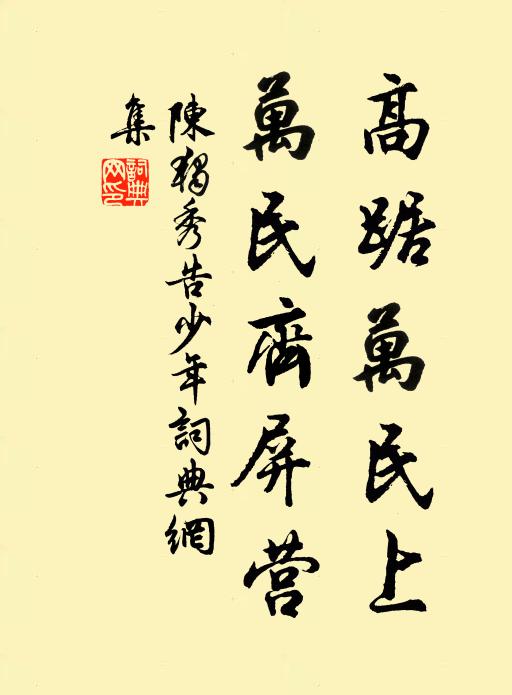 高踞萬民上
萬民齊屏营
陳獨秀告少年詞典網
集
詞典
网印